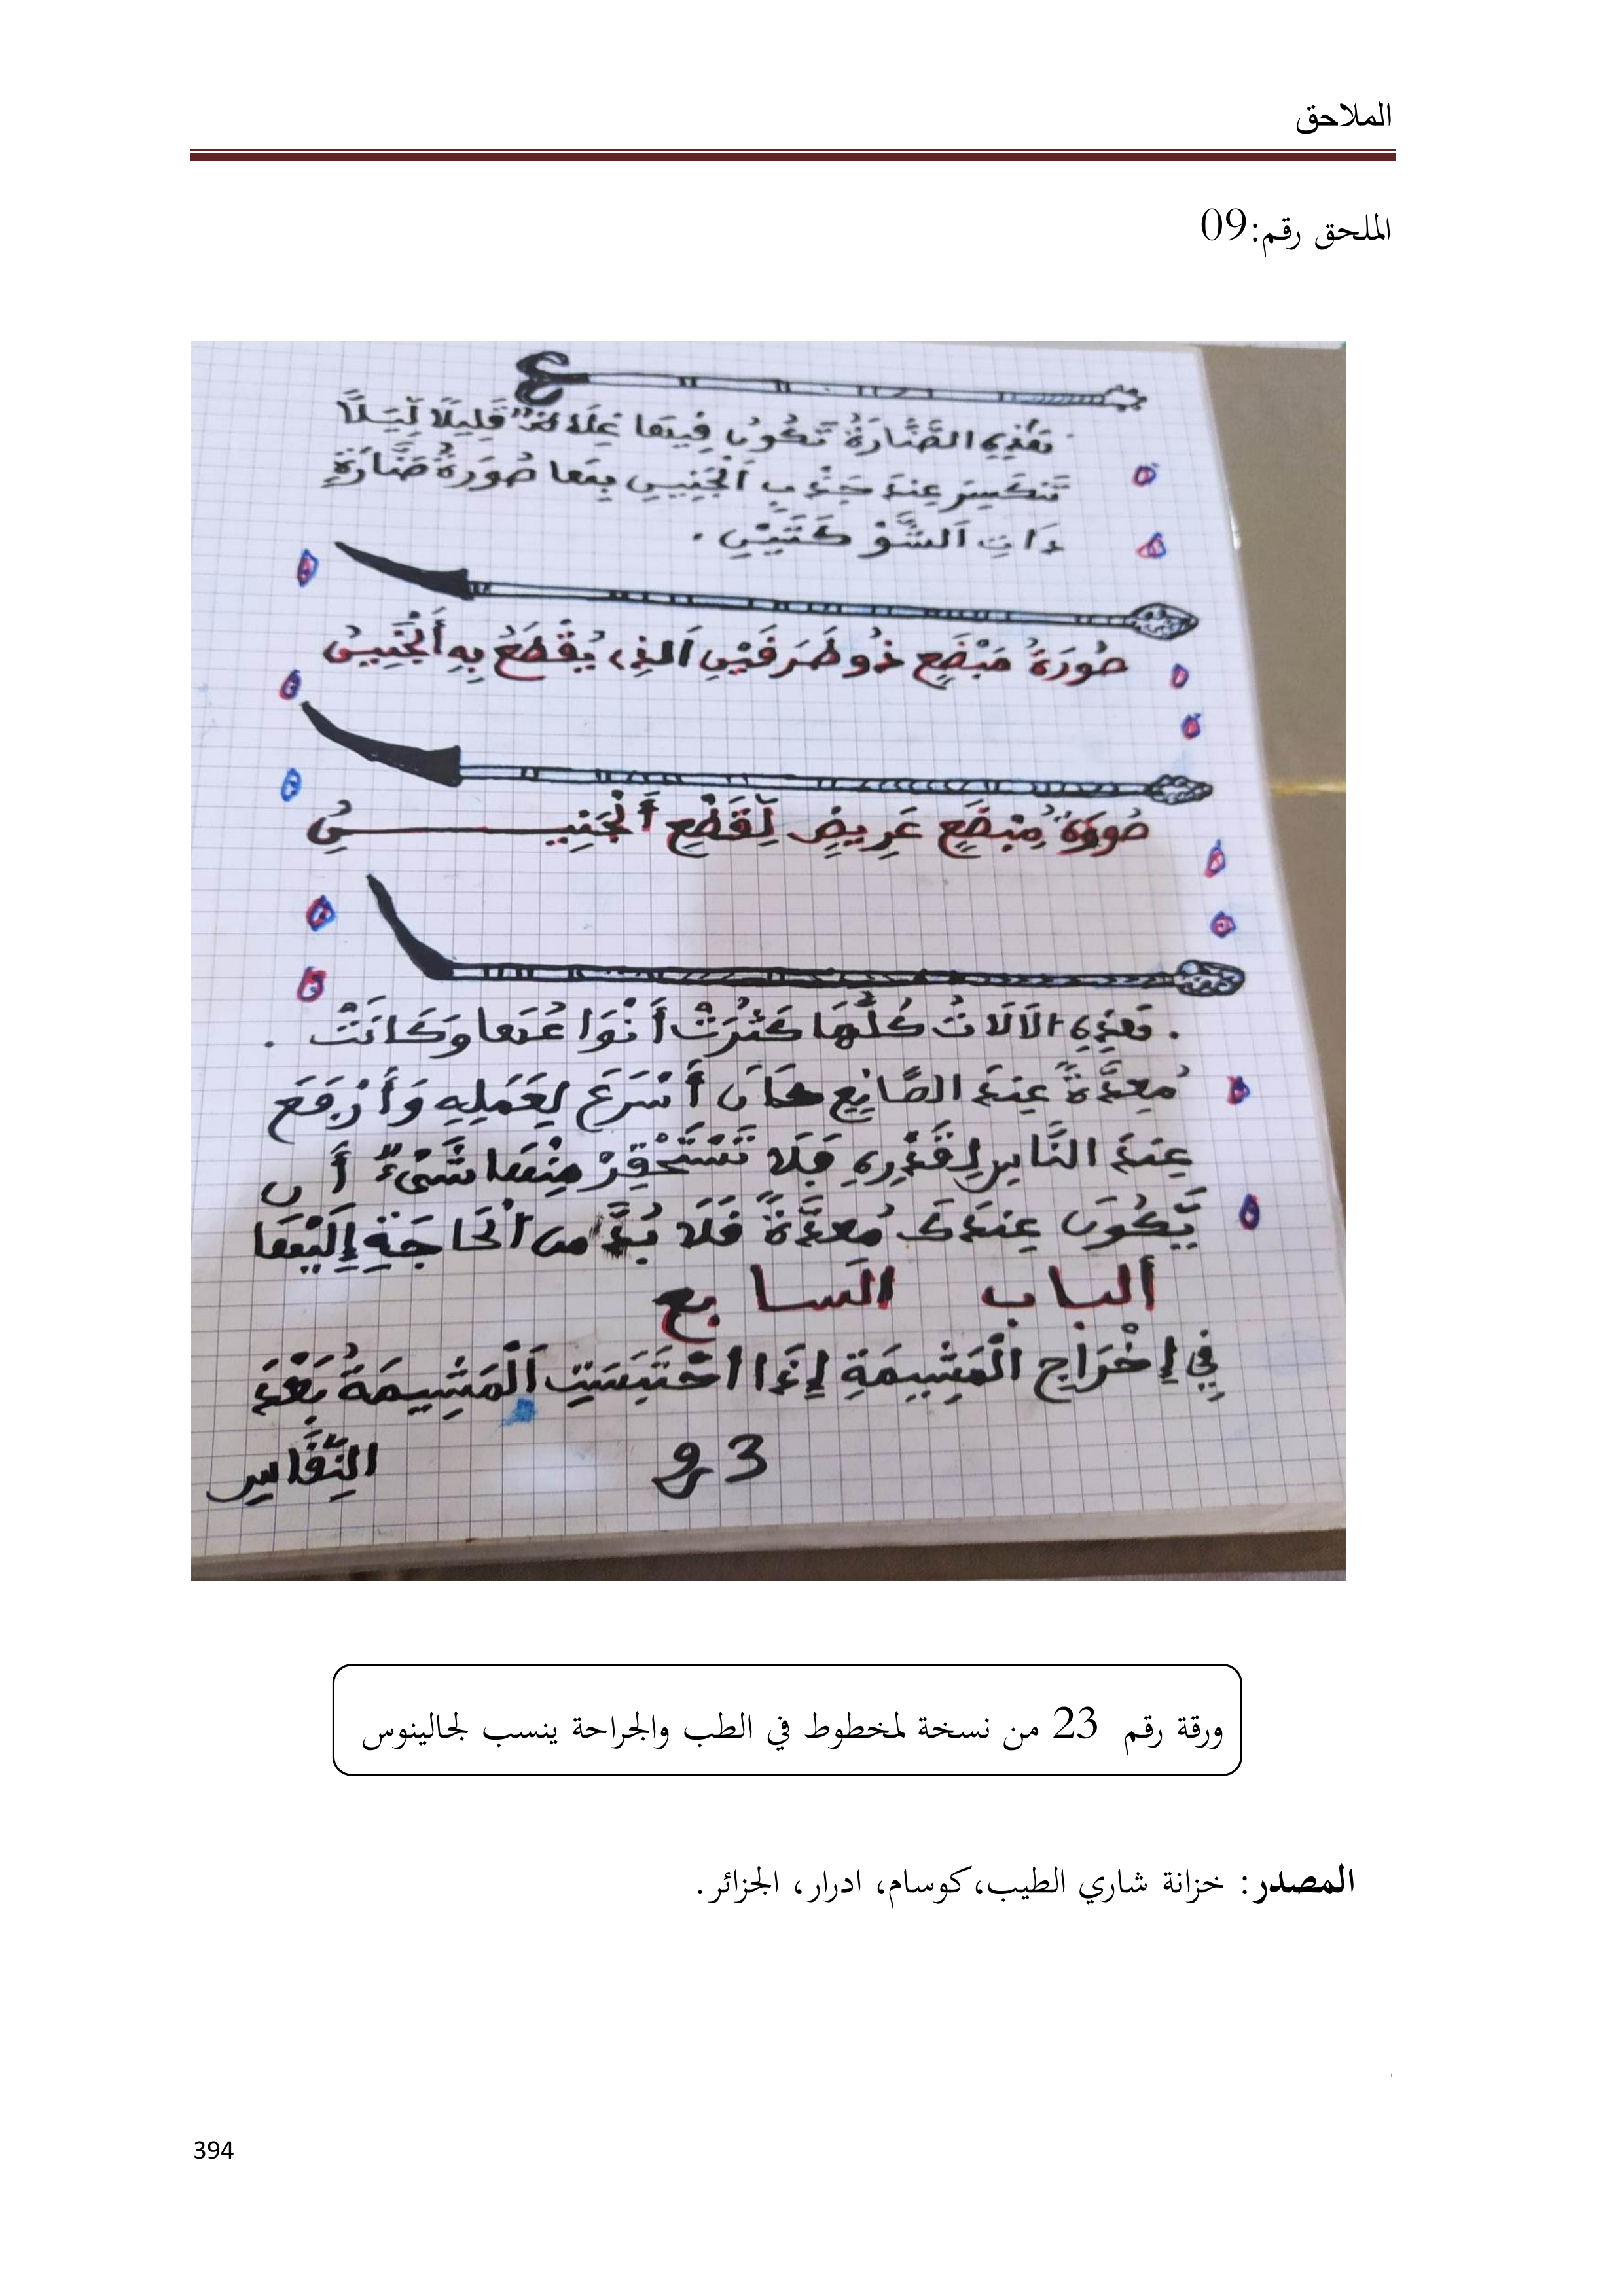 الملاحق
الملحق رقم:09
هَذِهِ الصَّنَّارَةُ تَكُونُ فِيهَا غِلَاظٌ قَلِيلًا لِّيَلَّا
تَنكَسِرَ عِندَ جَذْبِ اَلْجَنِينِ بِهَا صُورَةُ صَنَّارَةٍ
ذَاتِ اَلشَّوْكَتَيْنِ .
صُورَةُ مَبْضَعٍ ذُو طَرَفَيْنِ اَلذِي يُقْطَعُ بِهِ أَلْجَنِينُ
صُورَةُ مِبْضَعٍ عَرِيضٍ لِّقَطْعِ أَلْجَنِيـــــنِ
. هَذِهِ الَالَاتُ كُلُّهَا كَثُرَتْ أَنْوَاعُهَا وَكَانَتْ .
مُعَدَّةً عِندَ الصَّانِعِ كَانَ أَسْرَعَ لِعَمَلِهِ وَأَرْفَعَ
عِندَ النَّاسِ لِقَدْرِهِ فَلَا تَسْتَحْقِرْ مِنْهَا شَيْءٌ أَن
يَّكُونَ عِندَكَ مُعَدَّةً فَلَا بُدَّ من اَلْحَاجَةِ إِلَيْهَا
ألباب السابع
فِي إِخْرَاجِ الْمَشِيمَةِ إِذَا احْتَبَسَتِ اَلْمَشِيمَةُ بَعْدَ
النِّفَاسِ
ورقة رقم 23 من نسخة لمخطوط في الطب والجراحة ينسب لجالينوس
المصدر: خزانة شاري الطيب،كوسام، ادرار، الجزائر.
394